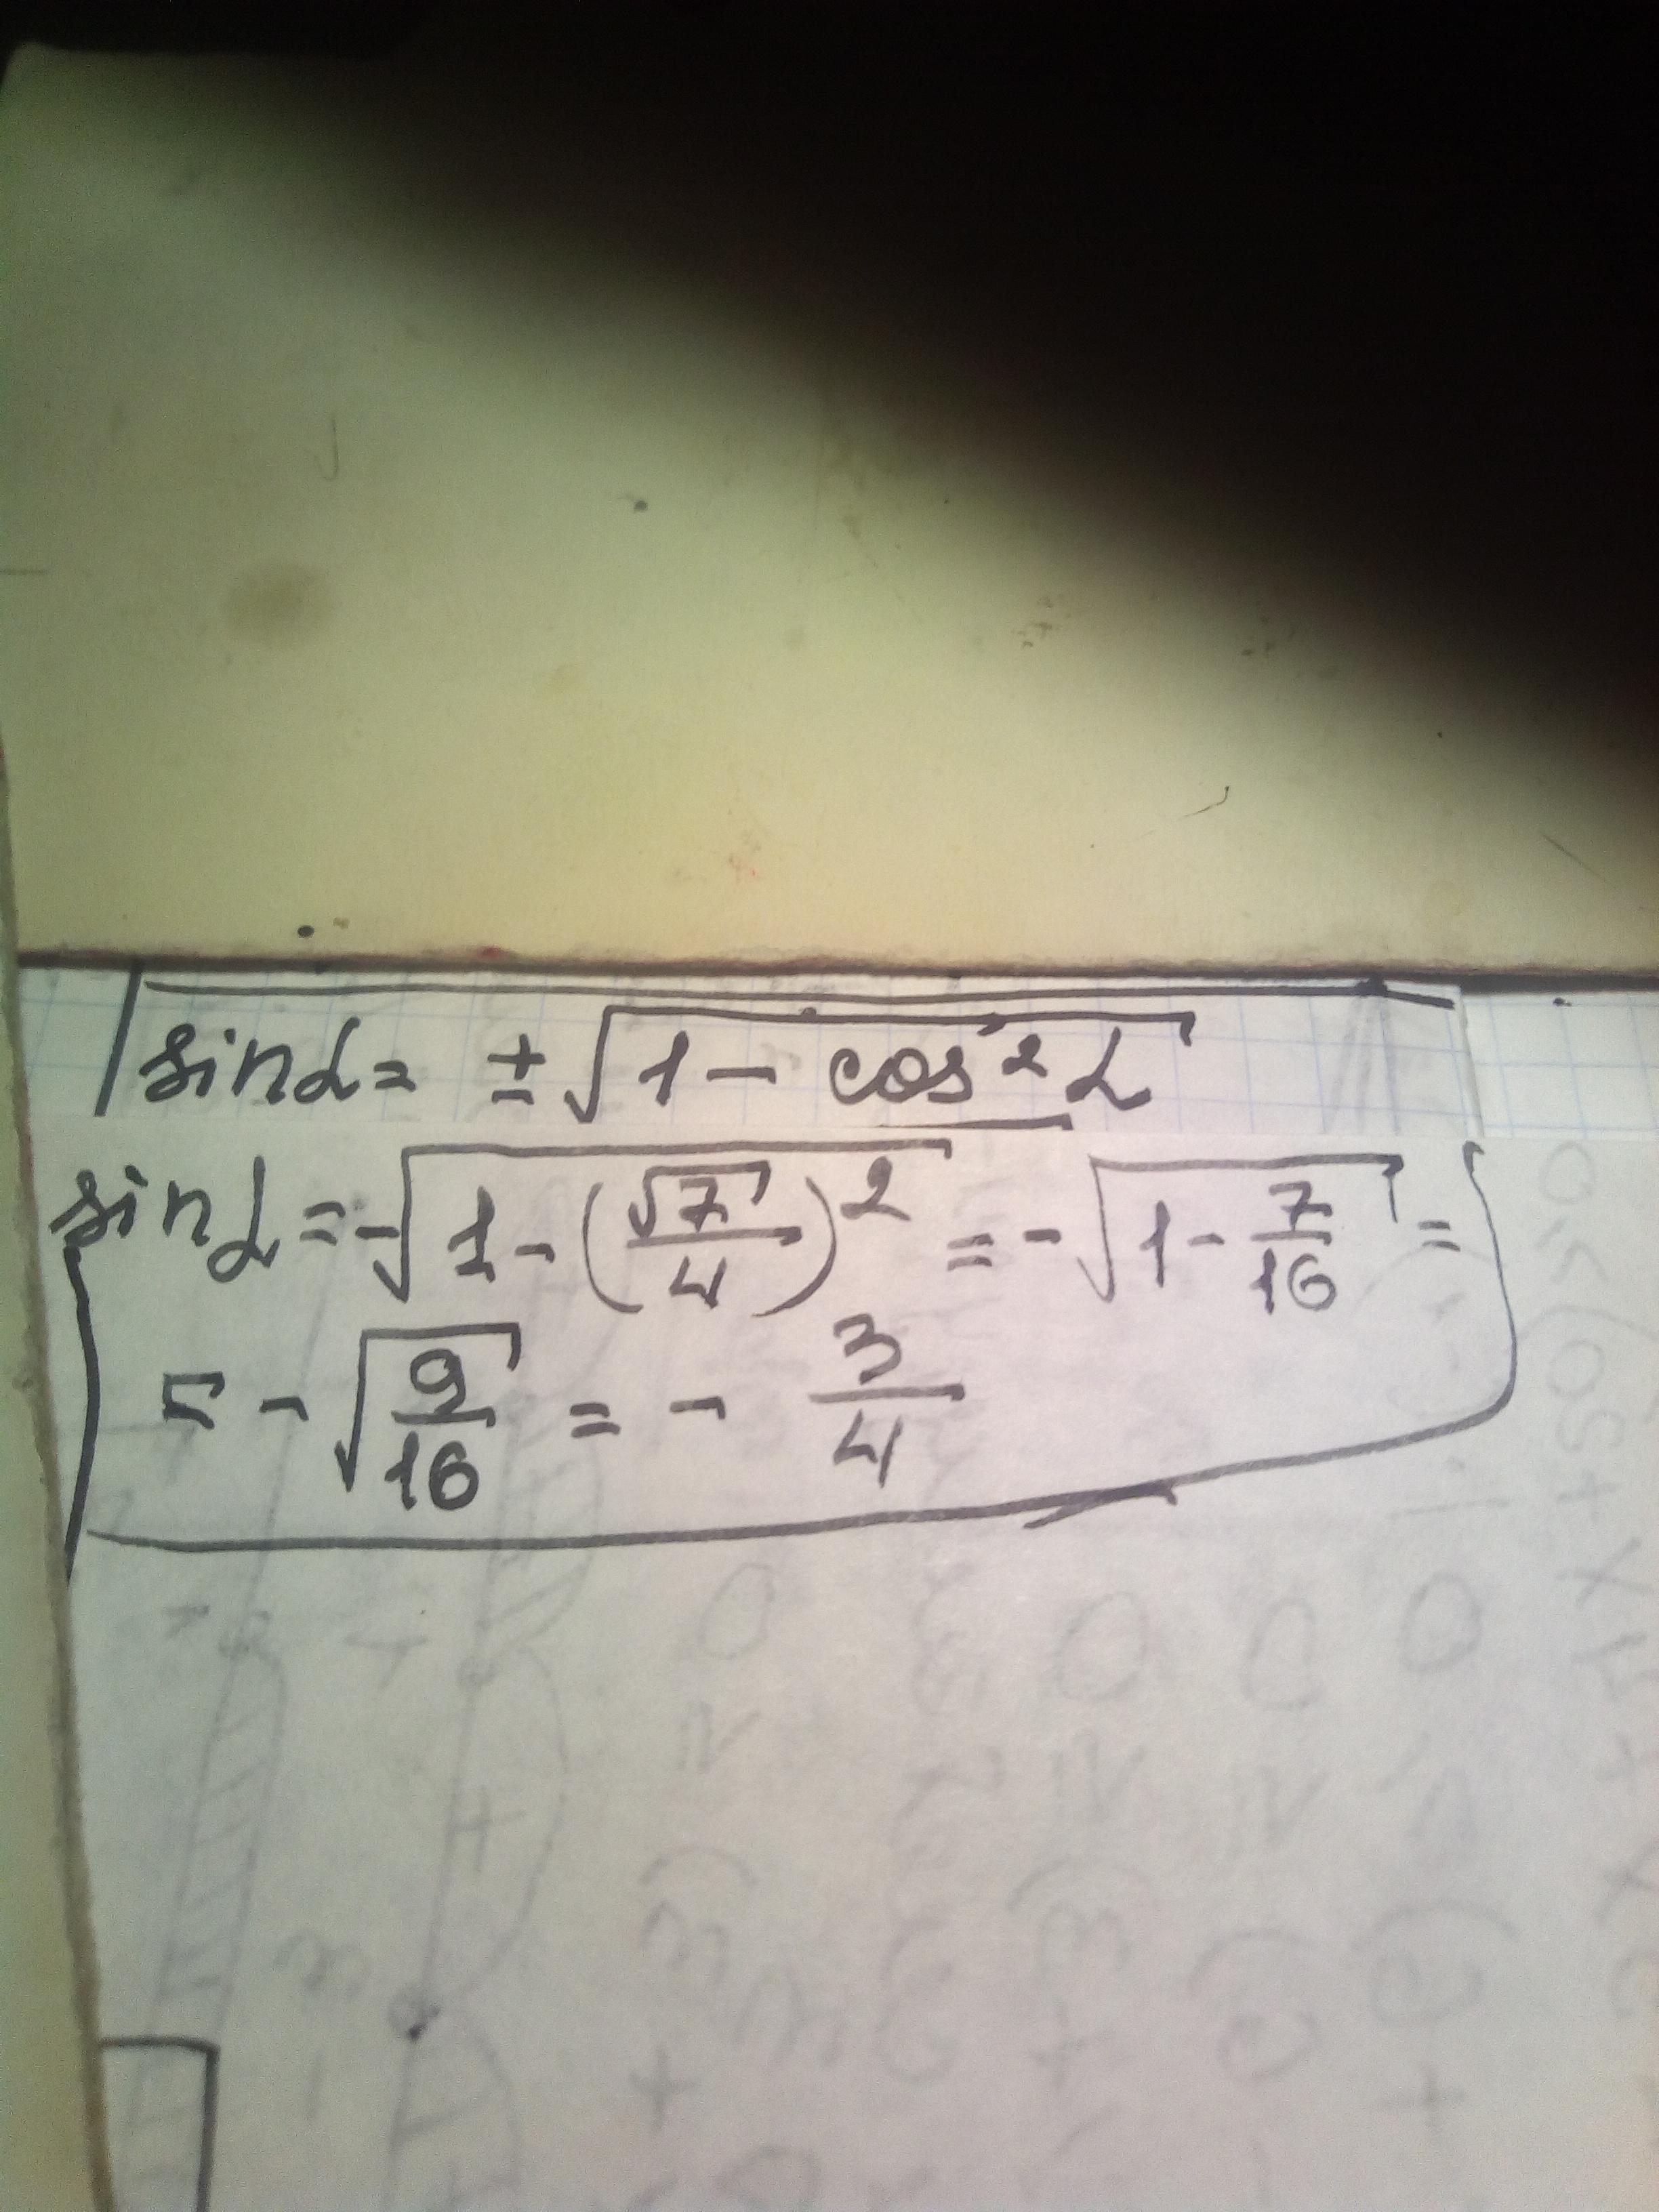 sinα= ±√(1 - cos²α)
sinα = -√(1 - (√7/4)²) = -√(1 - 7/16) =
= -√(9/16) = - 3/4